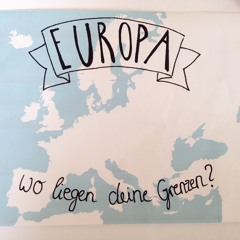 EUROPA
wo liegen deine Grenzen?